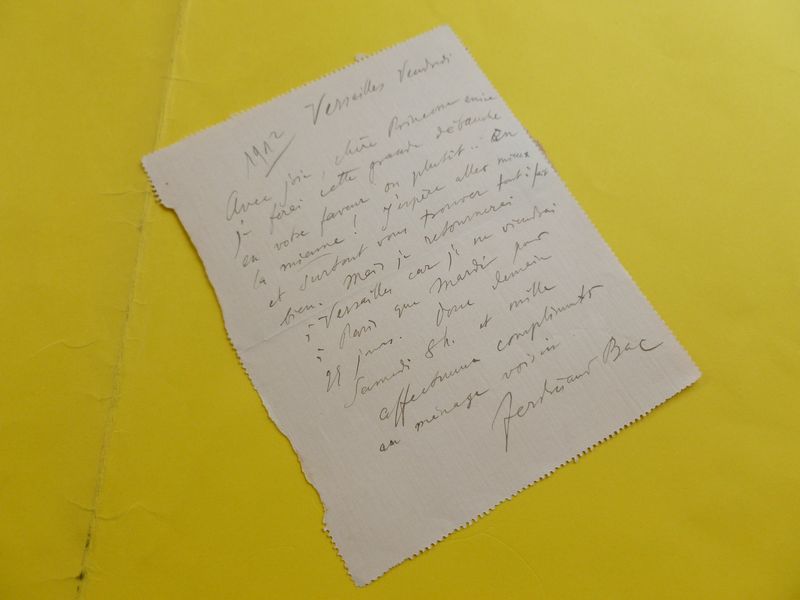 Versailles Vendredi
1912
Avec joie, chère Princesse amie
je ferai cette grande débauche
en votre faveur ou plutôt.. En
la mienne! J'espère aller mieux
et surtout vous trouver tout à fait
bien. Mais je retournerai
à Versailles car je ne viendrai
à Paris que Mardi pour
jours. Donc demain
Samedi 8h. et mille
affectueux compliments
au ménage voisin
Ferdinand Bac